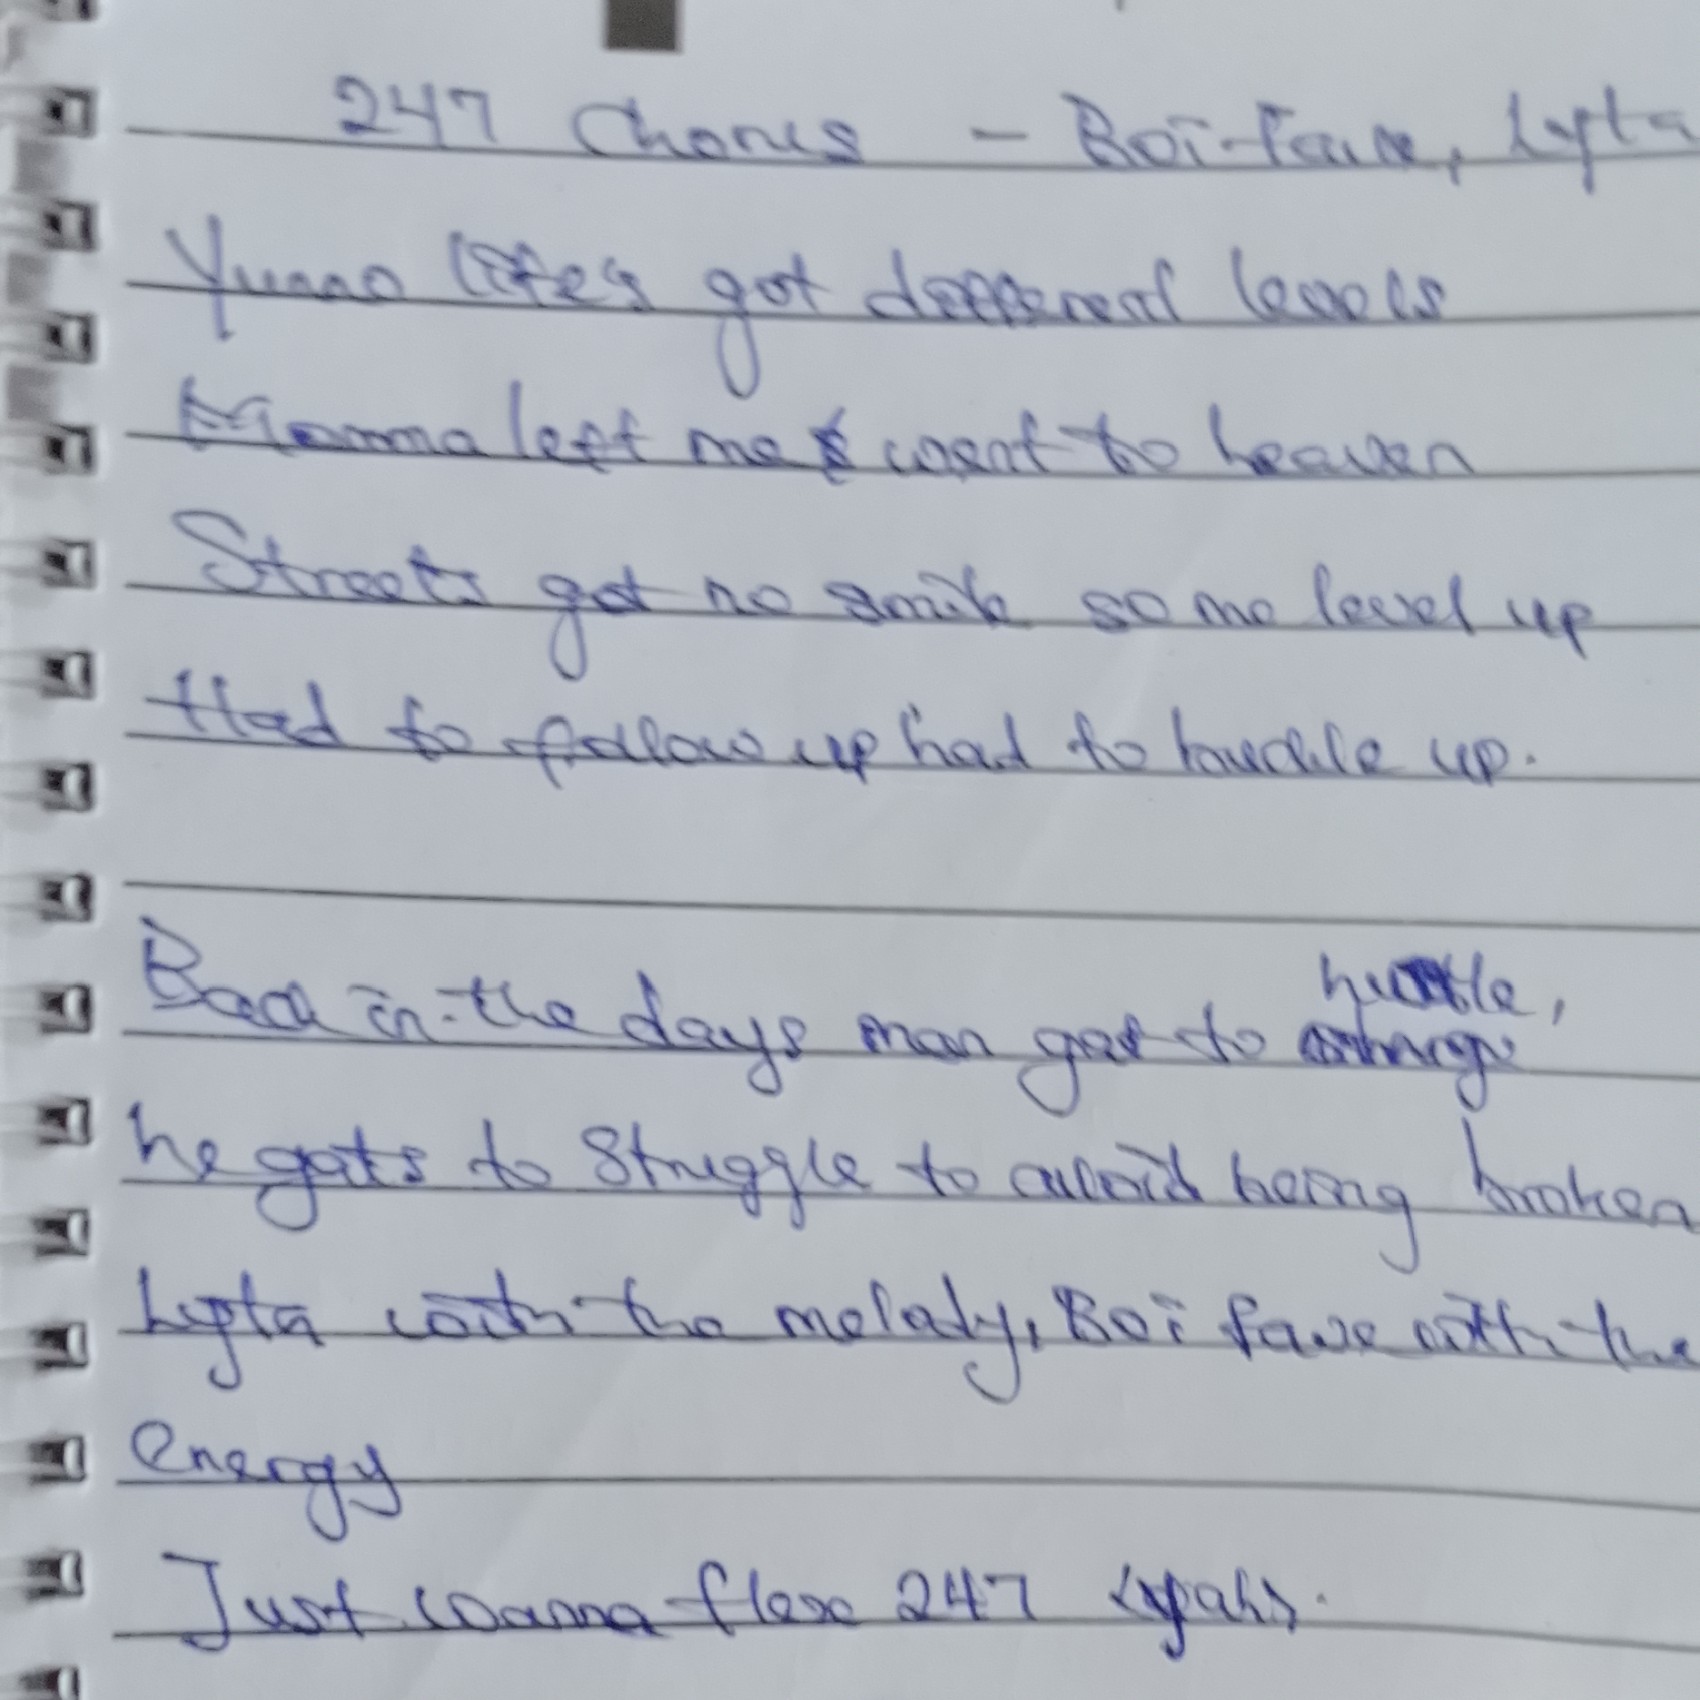 247 Chorus - Boi-fave, Lyfta
Yunno life's got different levels
Momma left me & went to heaven
Streets got no smile so me level up
Had to follow up had to huddle up.
Back in the days man got to hustle,
he gats to struggle to avoid being broken
Lyfta with the melody, Boi fave with the
energy
Just wanna flexe 247 <yah>.